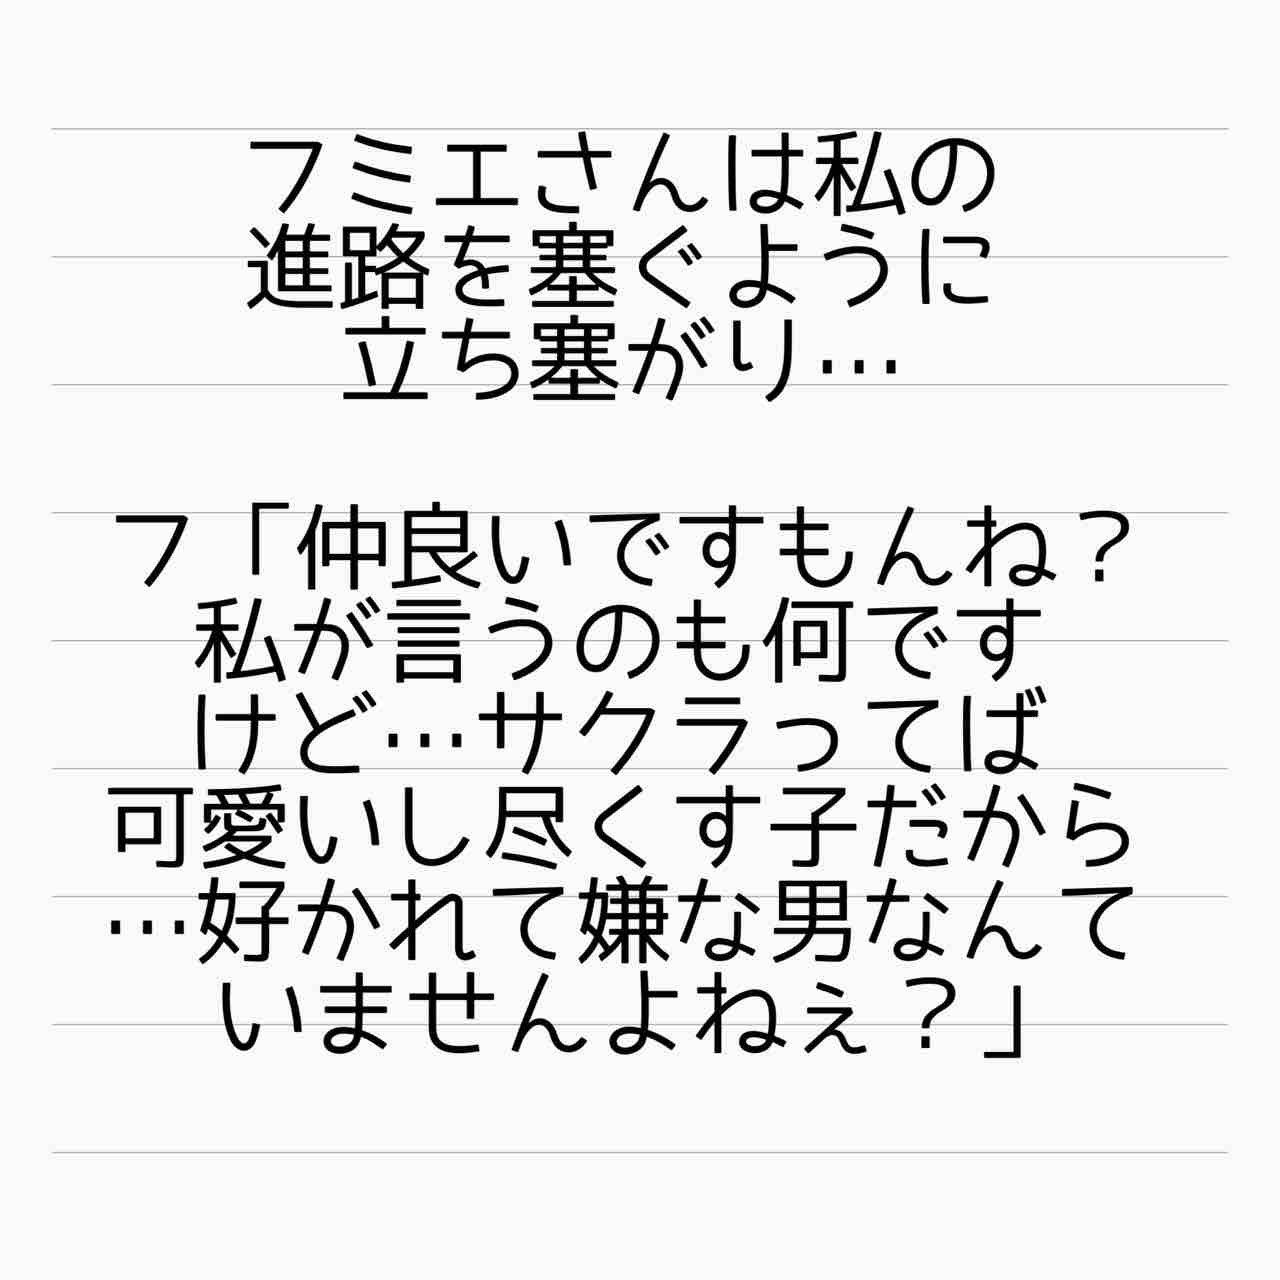 フミエさんは私の
進路を塞ぐように
立ち塞がり…
フ「仲良いですもんね？
私が言うのも何です
けど…サクラってば
可愛いし尽くす子だから
…好かれて嫌な男なんて
いませんよねぇ？」